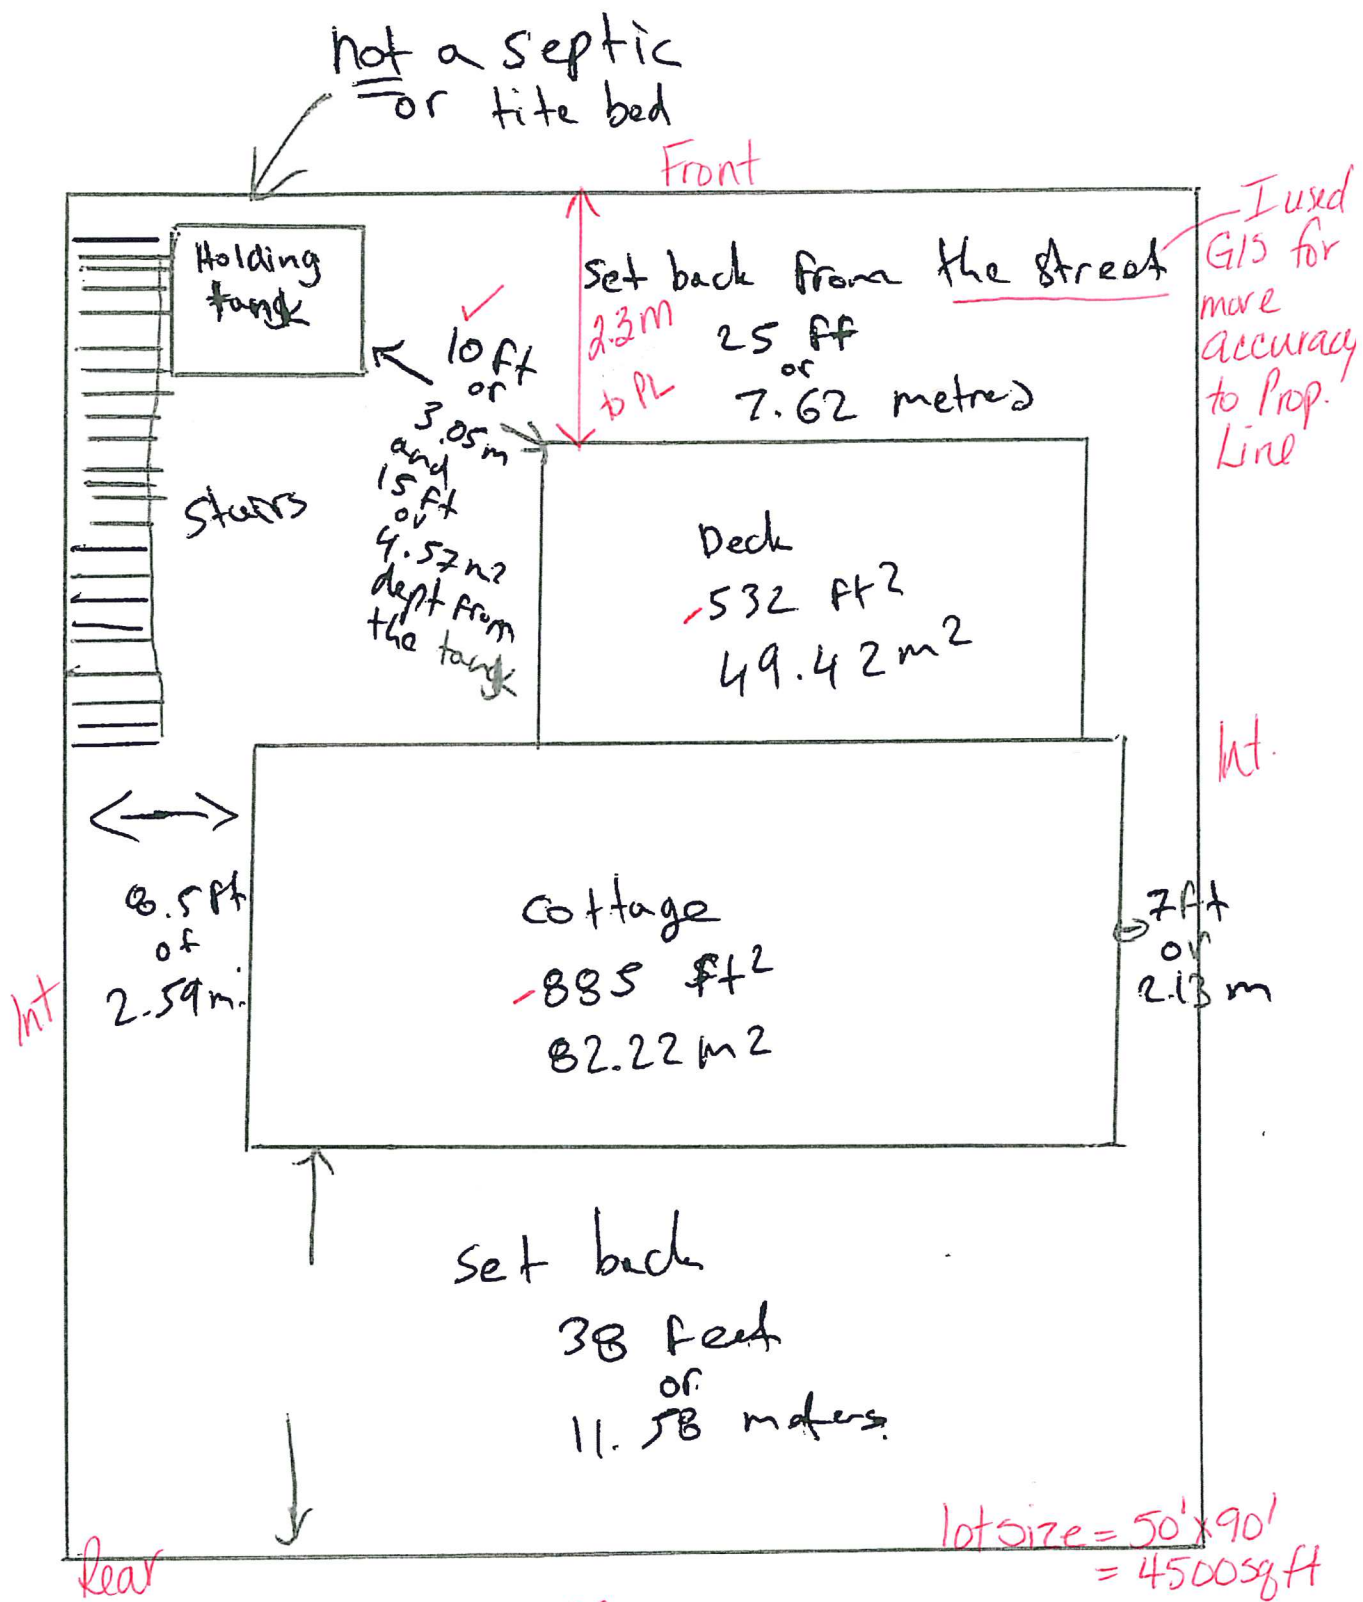 not a septic
or tite bed
Front
I used
GIS for
more
accuracy
to Prop.
Line
Holding
tangk
set back from the street
25 ft
or
7.62 metres
2.3m
to PL
10 ft
or
3.05m
and
15 ft
or
4.57m2
dept from
the tangk
stairs
Deck
532 ft2
49.42m2
Int.
8.5 ft
of
2.59m.
Int
Cottage
885 ft2
82.22m2
7ft
or
2.13 m
Set back
38 feet
or
11.58 meters.
lot size = 50'x90'
= 4500sqft
Rear